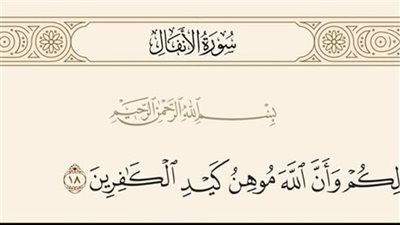 سُورَةُ الأَنْفَالِ
بِسْمِ اللَّهِ الرَّحْمَنِ الرَّحِيمِ
لِكُمْ وَأَنَّ اللَّهَ مُوهِنُ كَيْدِ الْكَافِرِينَ ١٨